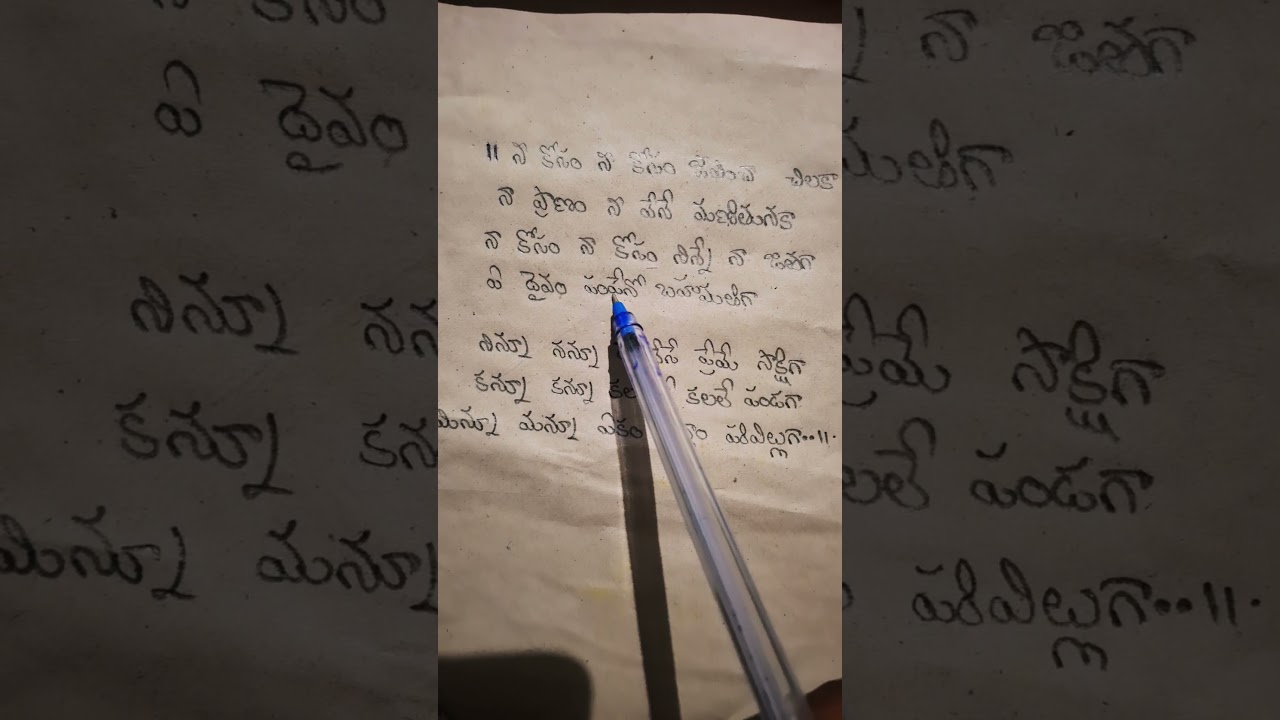 ॥ నా కోసం నా కోసం చిలకా
నా ప్రాణం నా వేసే
నా కోసం నా కోసం నిన్నే నా జతగా
ఏ దైవం పంపేనో బహుమతిగా
నిన్నూ నన్నూ ప్రేమే సాక్షిగా
కన్నూ కన్నూ కలలే పండగా
మిన్నూ మన్నూ ఏకం హరివిల్లుగా..॥.